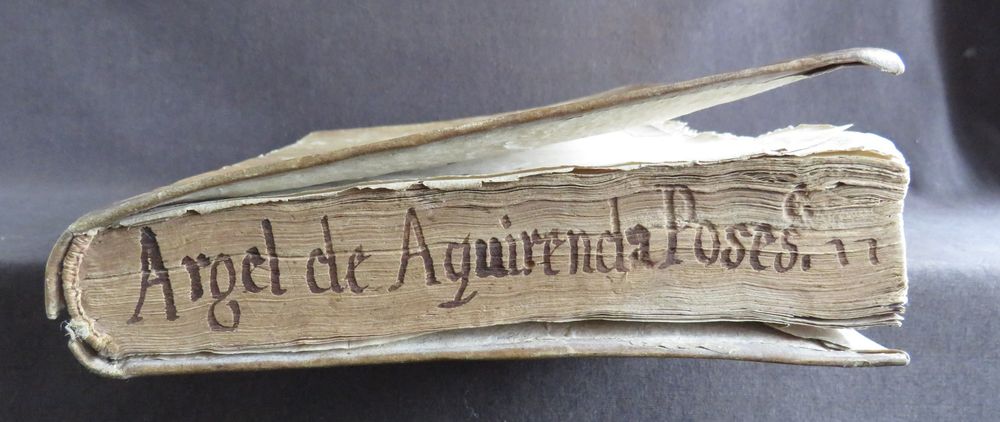 Argel de Aquirenda Poses.ᵉ 11